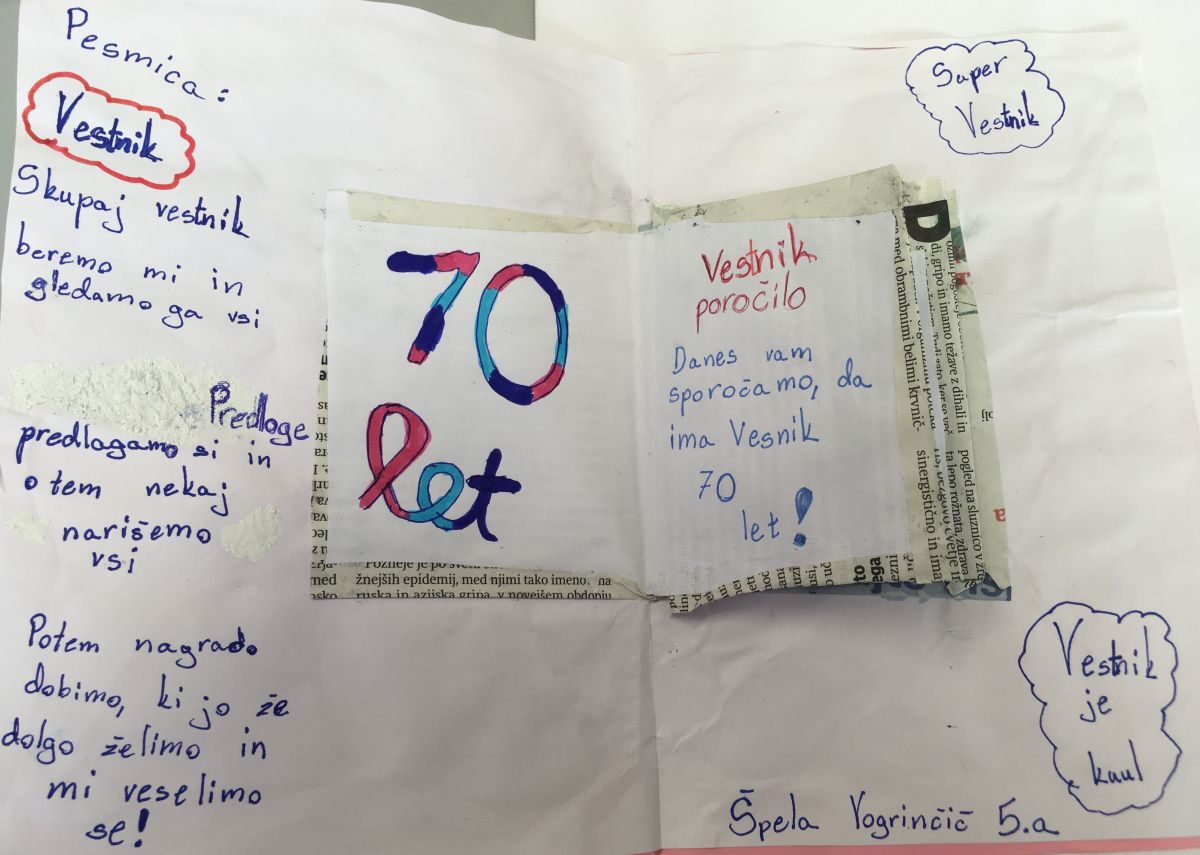 Pesmica:
Vestnik
Skupaj vestnik
beremo mi in
gledamo ga vsi
Predloge
predlagamo si in
o tem nekaj
narišemo
vsi
Potem nagrado
dobimo, ki jo že
dolgo želimo in
mi veselimo
se!
70
let
Pozneje je po svetu
žnejših epidemij, med njimi tako imeno na
ruska in azijska gripa, v novejšem obdobju
Vestnik
poročilo
Danes vam
sporočamo, da
ima Vesnik
70
let!
D
di, gripo in imamo težave z dihali in
pogled na sluznico v
ta leno rožnata, zdrava
med obrambnimi belimi krvnič-
sinergistično in ima
Super
Vestnik
Vestnik
je
kaul
Špela Vogrinčič 5.a